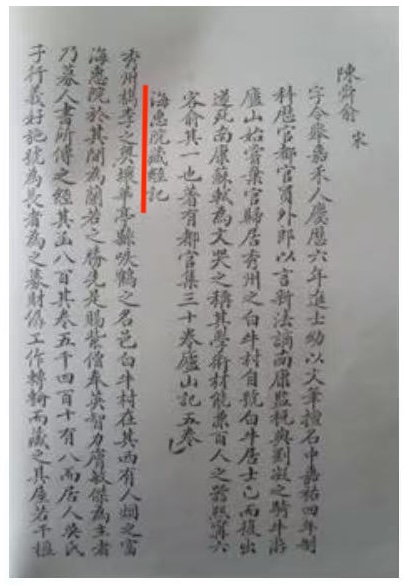 陳舜俞 宋
字令舉嘉禾人慶歷六年進士幼以文筆擅名中嘉祐四年制
科歷官都官員外郎以言新法謫南康監稅與劉凝之騎牛游
廬山始嘗棄官歸居秀州之白牛村自號白牛居士已而復出
遂死南康蘇軾為文哭之稱其學術材能兼百人之器熙寧六
客俞其一也著有都官集三十卷廬山記五卷
海惠院藏經記
秀州檇李之奧壤華亭縣唳鶴之名邑白牛村在其西有人烟之富
海惠院於其間為蘭若之勝先是賜紫僧奉英智力膚敏傑為主者
乃募人書所傳之經其函八百其卷五千四百十有八而居人吳氏
子行義好施號為長者為之募財僝工作轉輪而藏之其屋若干楹